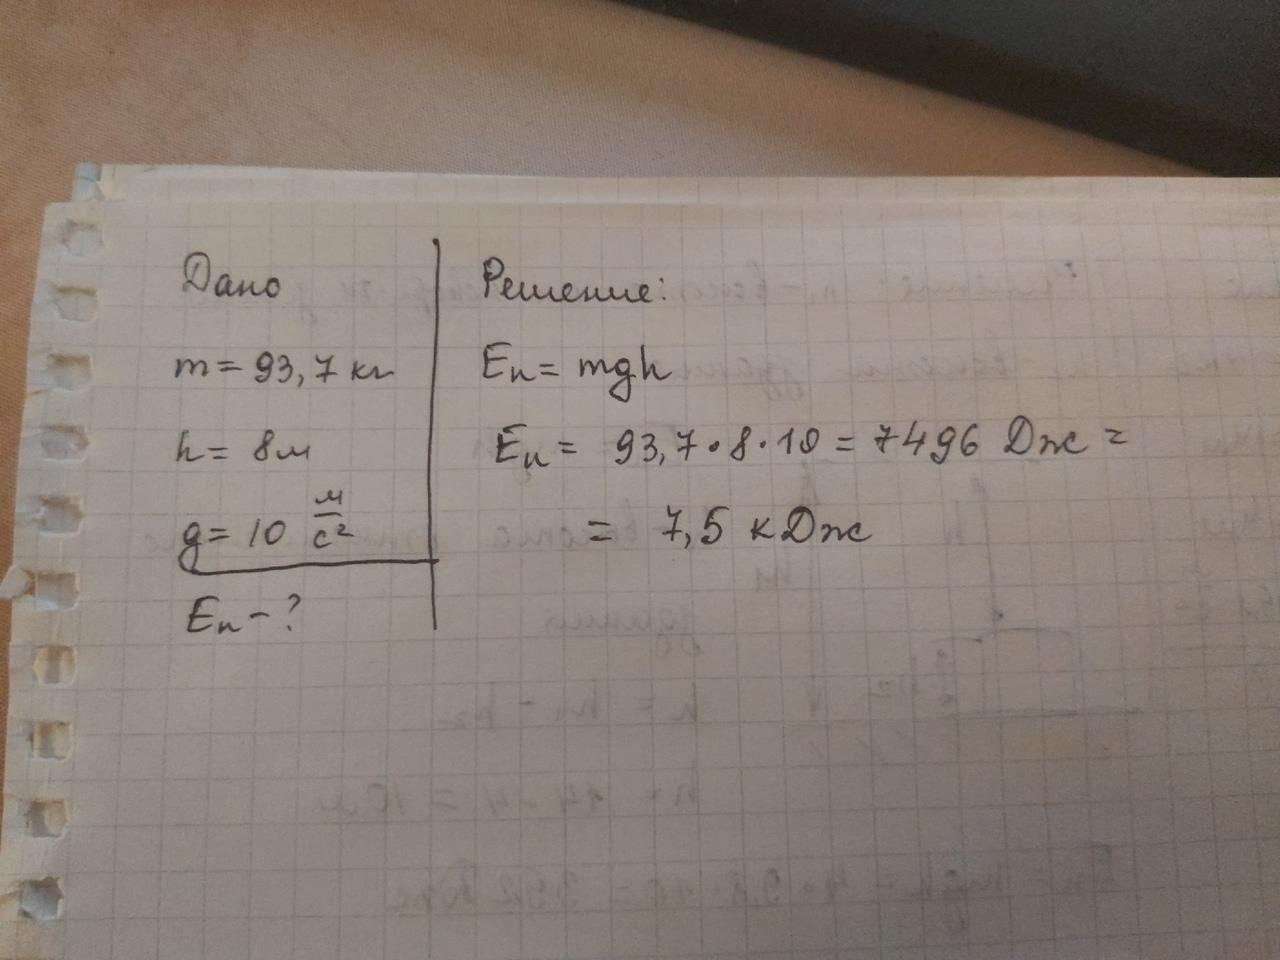 Дано
m = 93,7 кг
h = 8м
g = 10 м/с²
Eп - ?
Решение:
Eп = mgh
Eп = 93,7 · 8 · 10 = 7496 Дж =
= 7,5 кДж